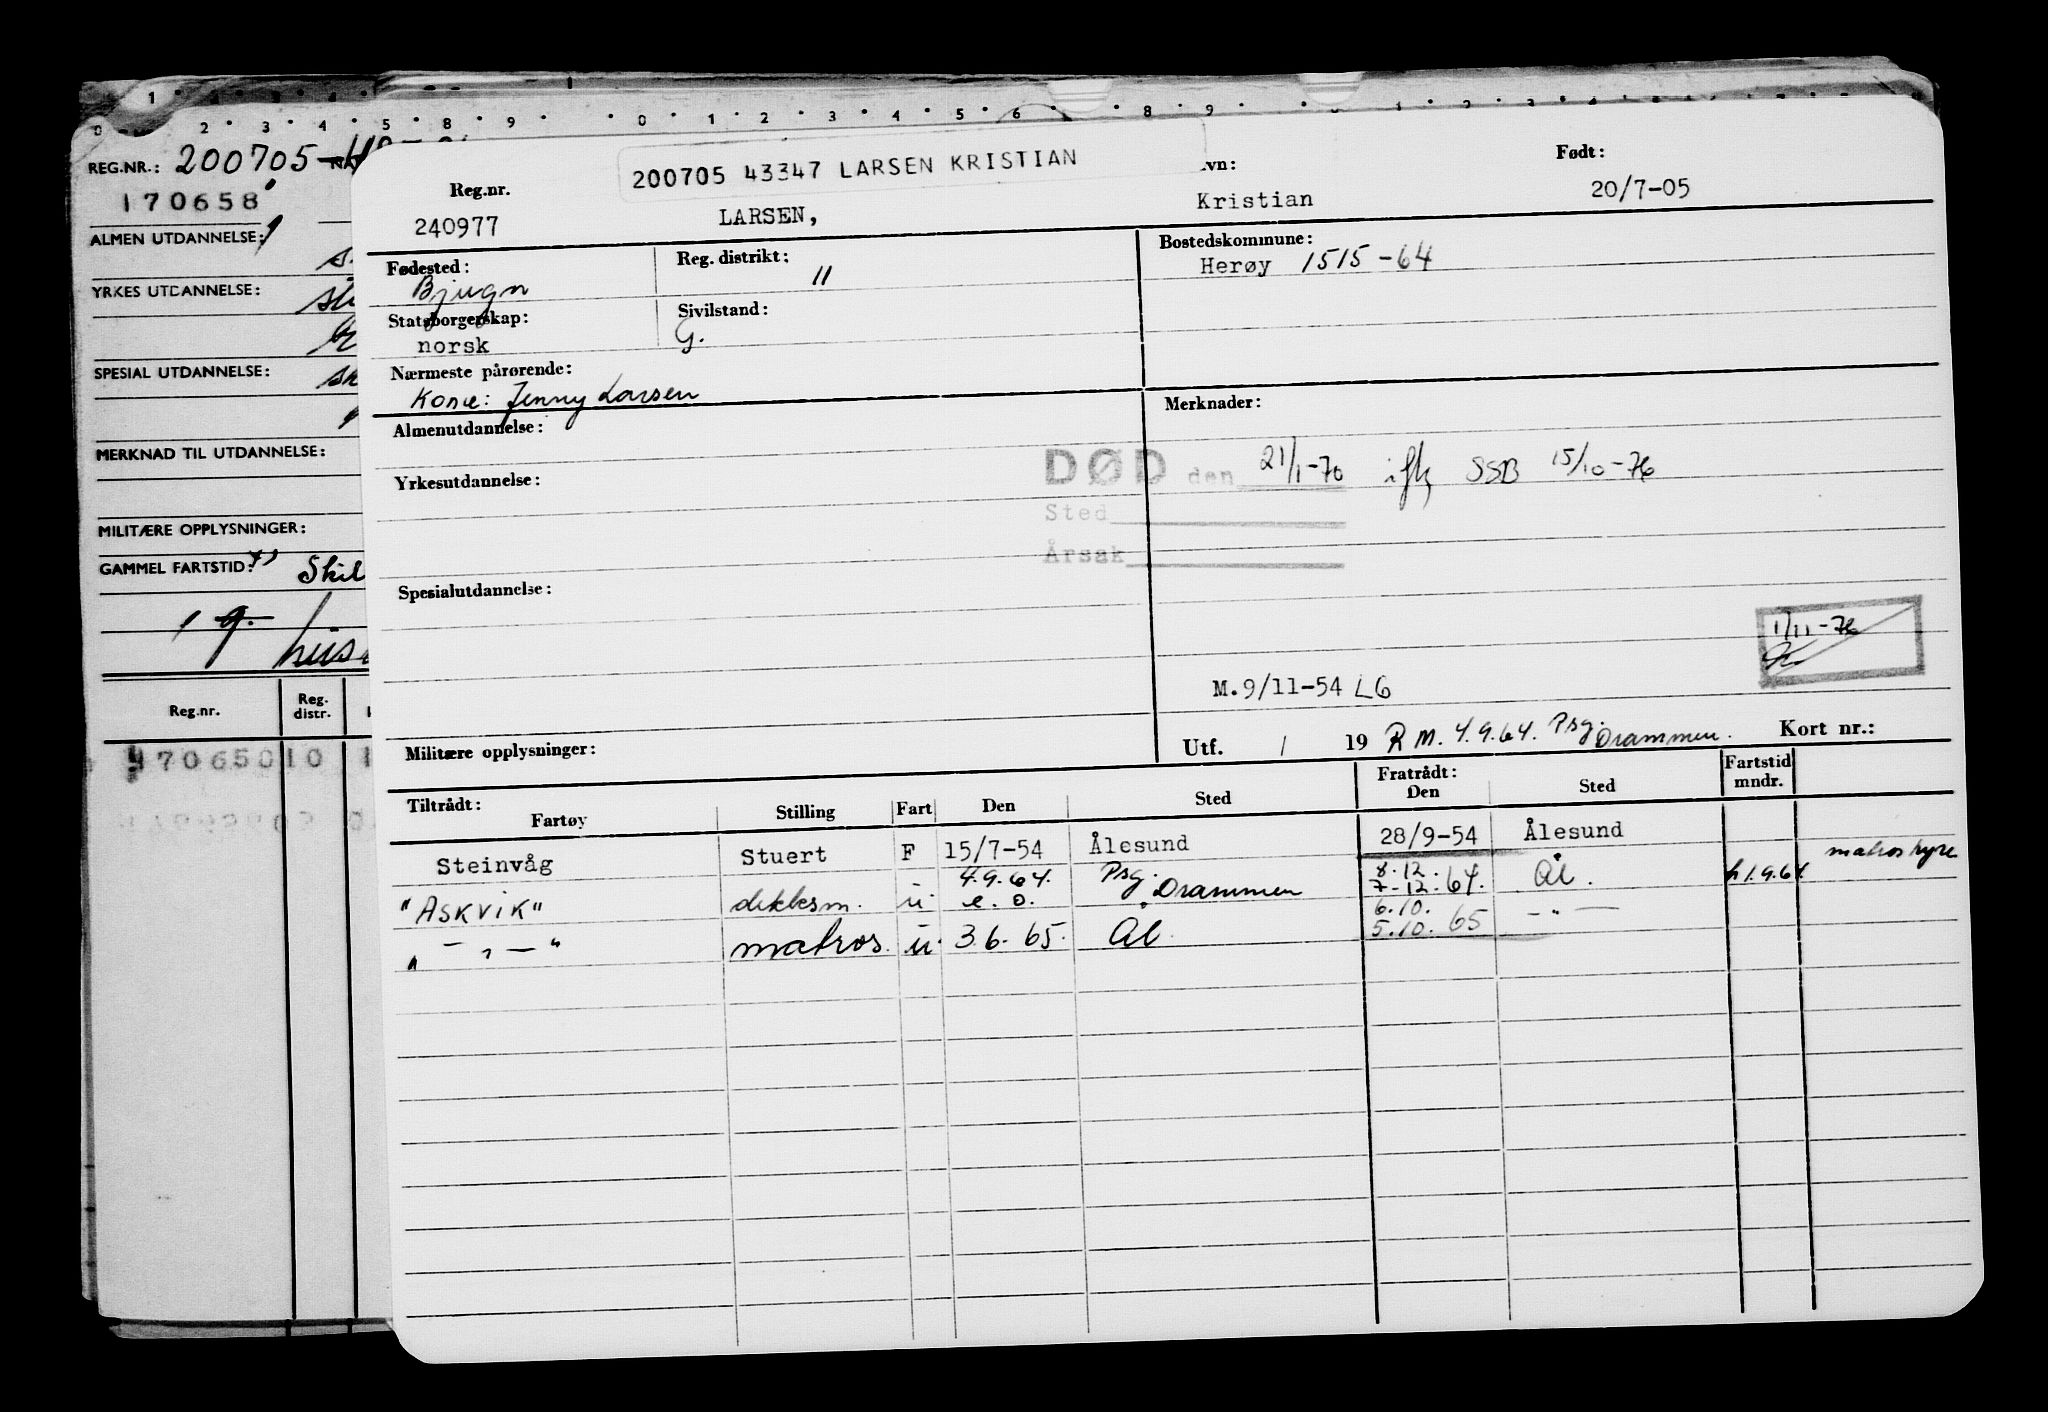 REG.NR.: 200705
170658
ALMEN UTDANNELSE:
YRKES UTDANNELSE:
SPESIAL UTDANNELSE:
MERKNAD TIL UTDANNELSE:
MILITÆRE OPPLYSNINGER:
GAMMEL FARTSTID:
Reg.nr.
Reg. distr.
200705 43347 LARSEN KRISTIAN
Reg.nr. Født:
240977 LARSEN, Kristian 20/7-05
Fødested: Reg. distrikt: Bostedskommune:
Bjugn 11 Herøy 1515-64
Statsborgerskap: Sivilstand:
norsk G.
Nærmeste pårørende:
Kone: Jenny Larsen
Merknader:
Almenutdannelse:
DØD den 21/1-70 iflg SSB 15/10-76
Yrkesutdannelse:
Sted
Årsak
Spesialutdannelse:
1/11-76
M.9/11-54 LG
Militære opplysninger:
Utf. / 19 R M. 4.9.64. Psg. Drammen. Kort nr.:
Tiltrådt: Fratrådt: Fartstid
Fartøy Stilling Fart Den Sted Den Sted mndr.
Steinvåg Stuert F 15/7-54 Ålesund 28/9-54 Ålesund
"ASKVIK" dekksm. u. 4.9.64. e.o. Psg. Drammen 8.12. 7-12.64. Ål. h1.9.64. matroshyre
" - " - " matros. u. 3.6.65. Ål 6.10. 5.10.65 - " -